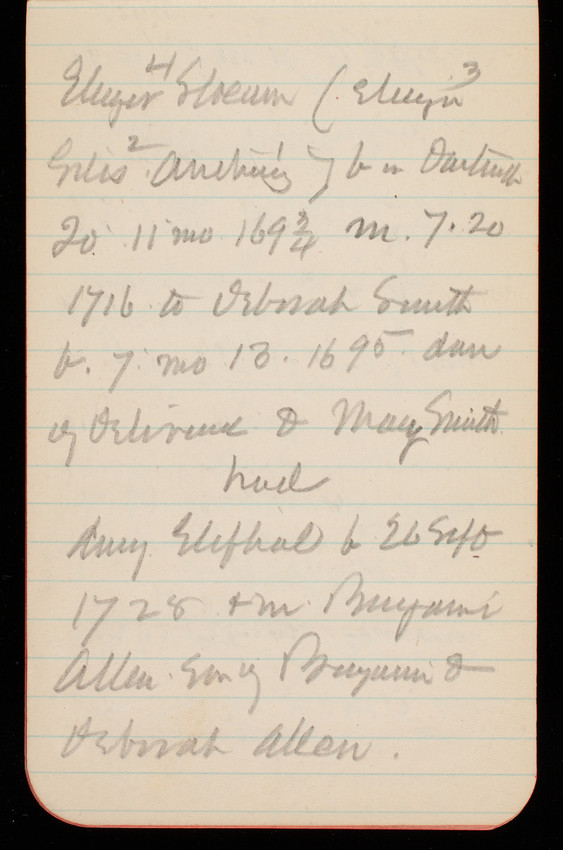 Eliezer⁴ Slocum (Eliezer³
Giles² Anthony¹) b in Dartmth
20 11 mo 169¾ m. 7.20
1716 to Deborah Smith
b. 7 mo 13. 1695 dau
of Deliverance & Mary Smith
had
Eliphal b 26 Sept
1728 & m. Benjamin
Allen Son of Benjamin &
Deborah Allen.